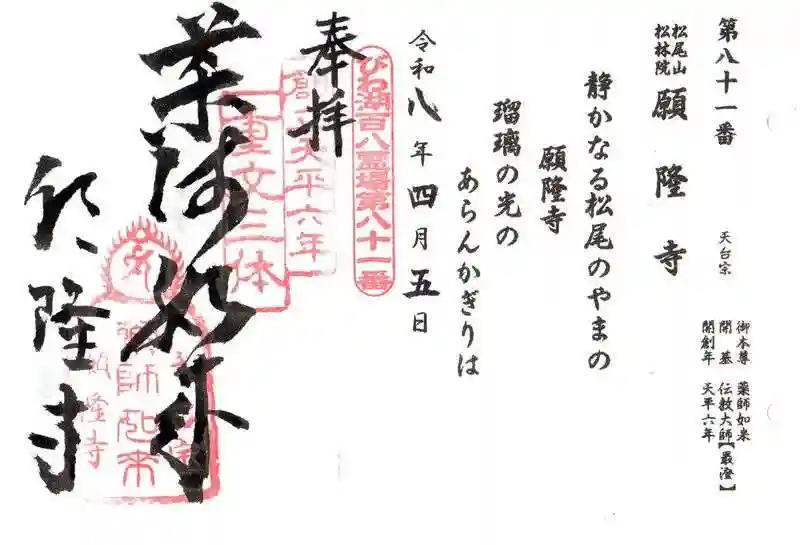 第八十一番
天台宗
御本尊 薬師如来
開基 伝教大師【最澄】
開創年 天平六年
松尾山
松林院
願隆寺
静かなる松尾のやまの
願隆寺
瑠璃の光の
あらんかぎりは
令和八年四月五日
奉拝
びわ湖百八霊場第八十一番
創立天平六年
重文三体
薬師如来
願隆寺
薬師如来
隆寺